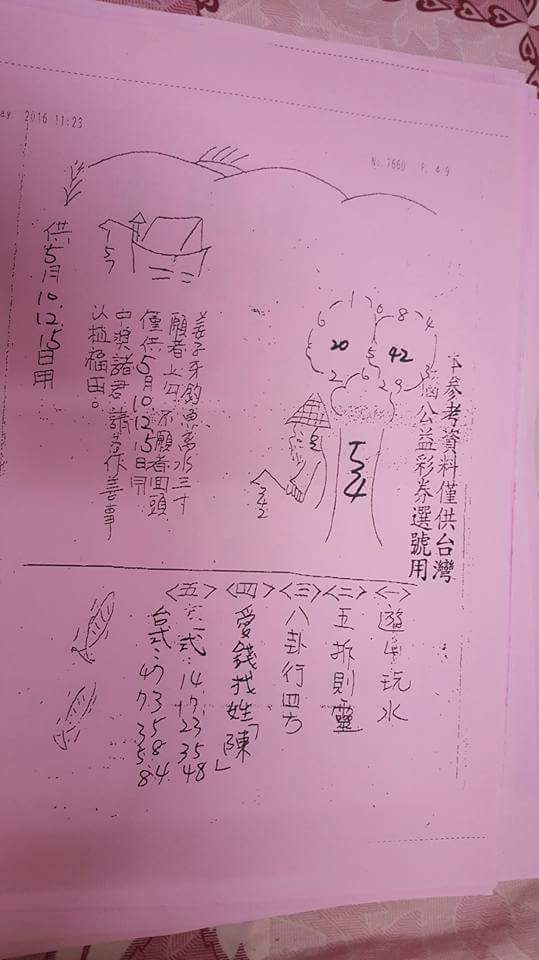 ay. 2016 11:23
No.7660 P. 4/9
本參考資料僅供台灣
公益彩券選號用
20
42
54
342
157
姜子牙釣魚离水三寸
願者上勾不願者回頭
僅供5月10 12 15日用
中獎諸君請善作善事
以植福田。
供5月10.12.15日用
<一> 遊山玩水
<二> 五拆則靈
<三> 八卦行四方
<四> 愛錢找姓「陳」
<五> 六式：14 17 23 35 48
台式：47 73 35 58 84